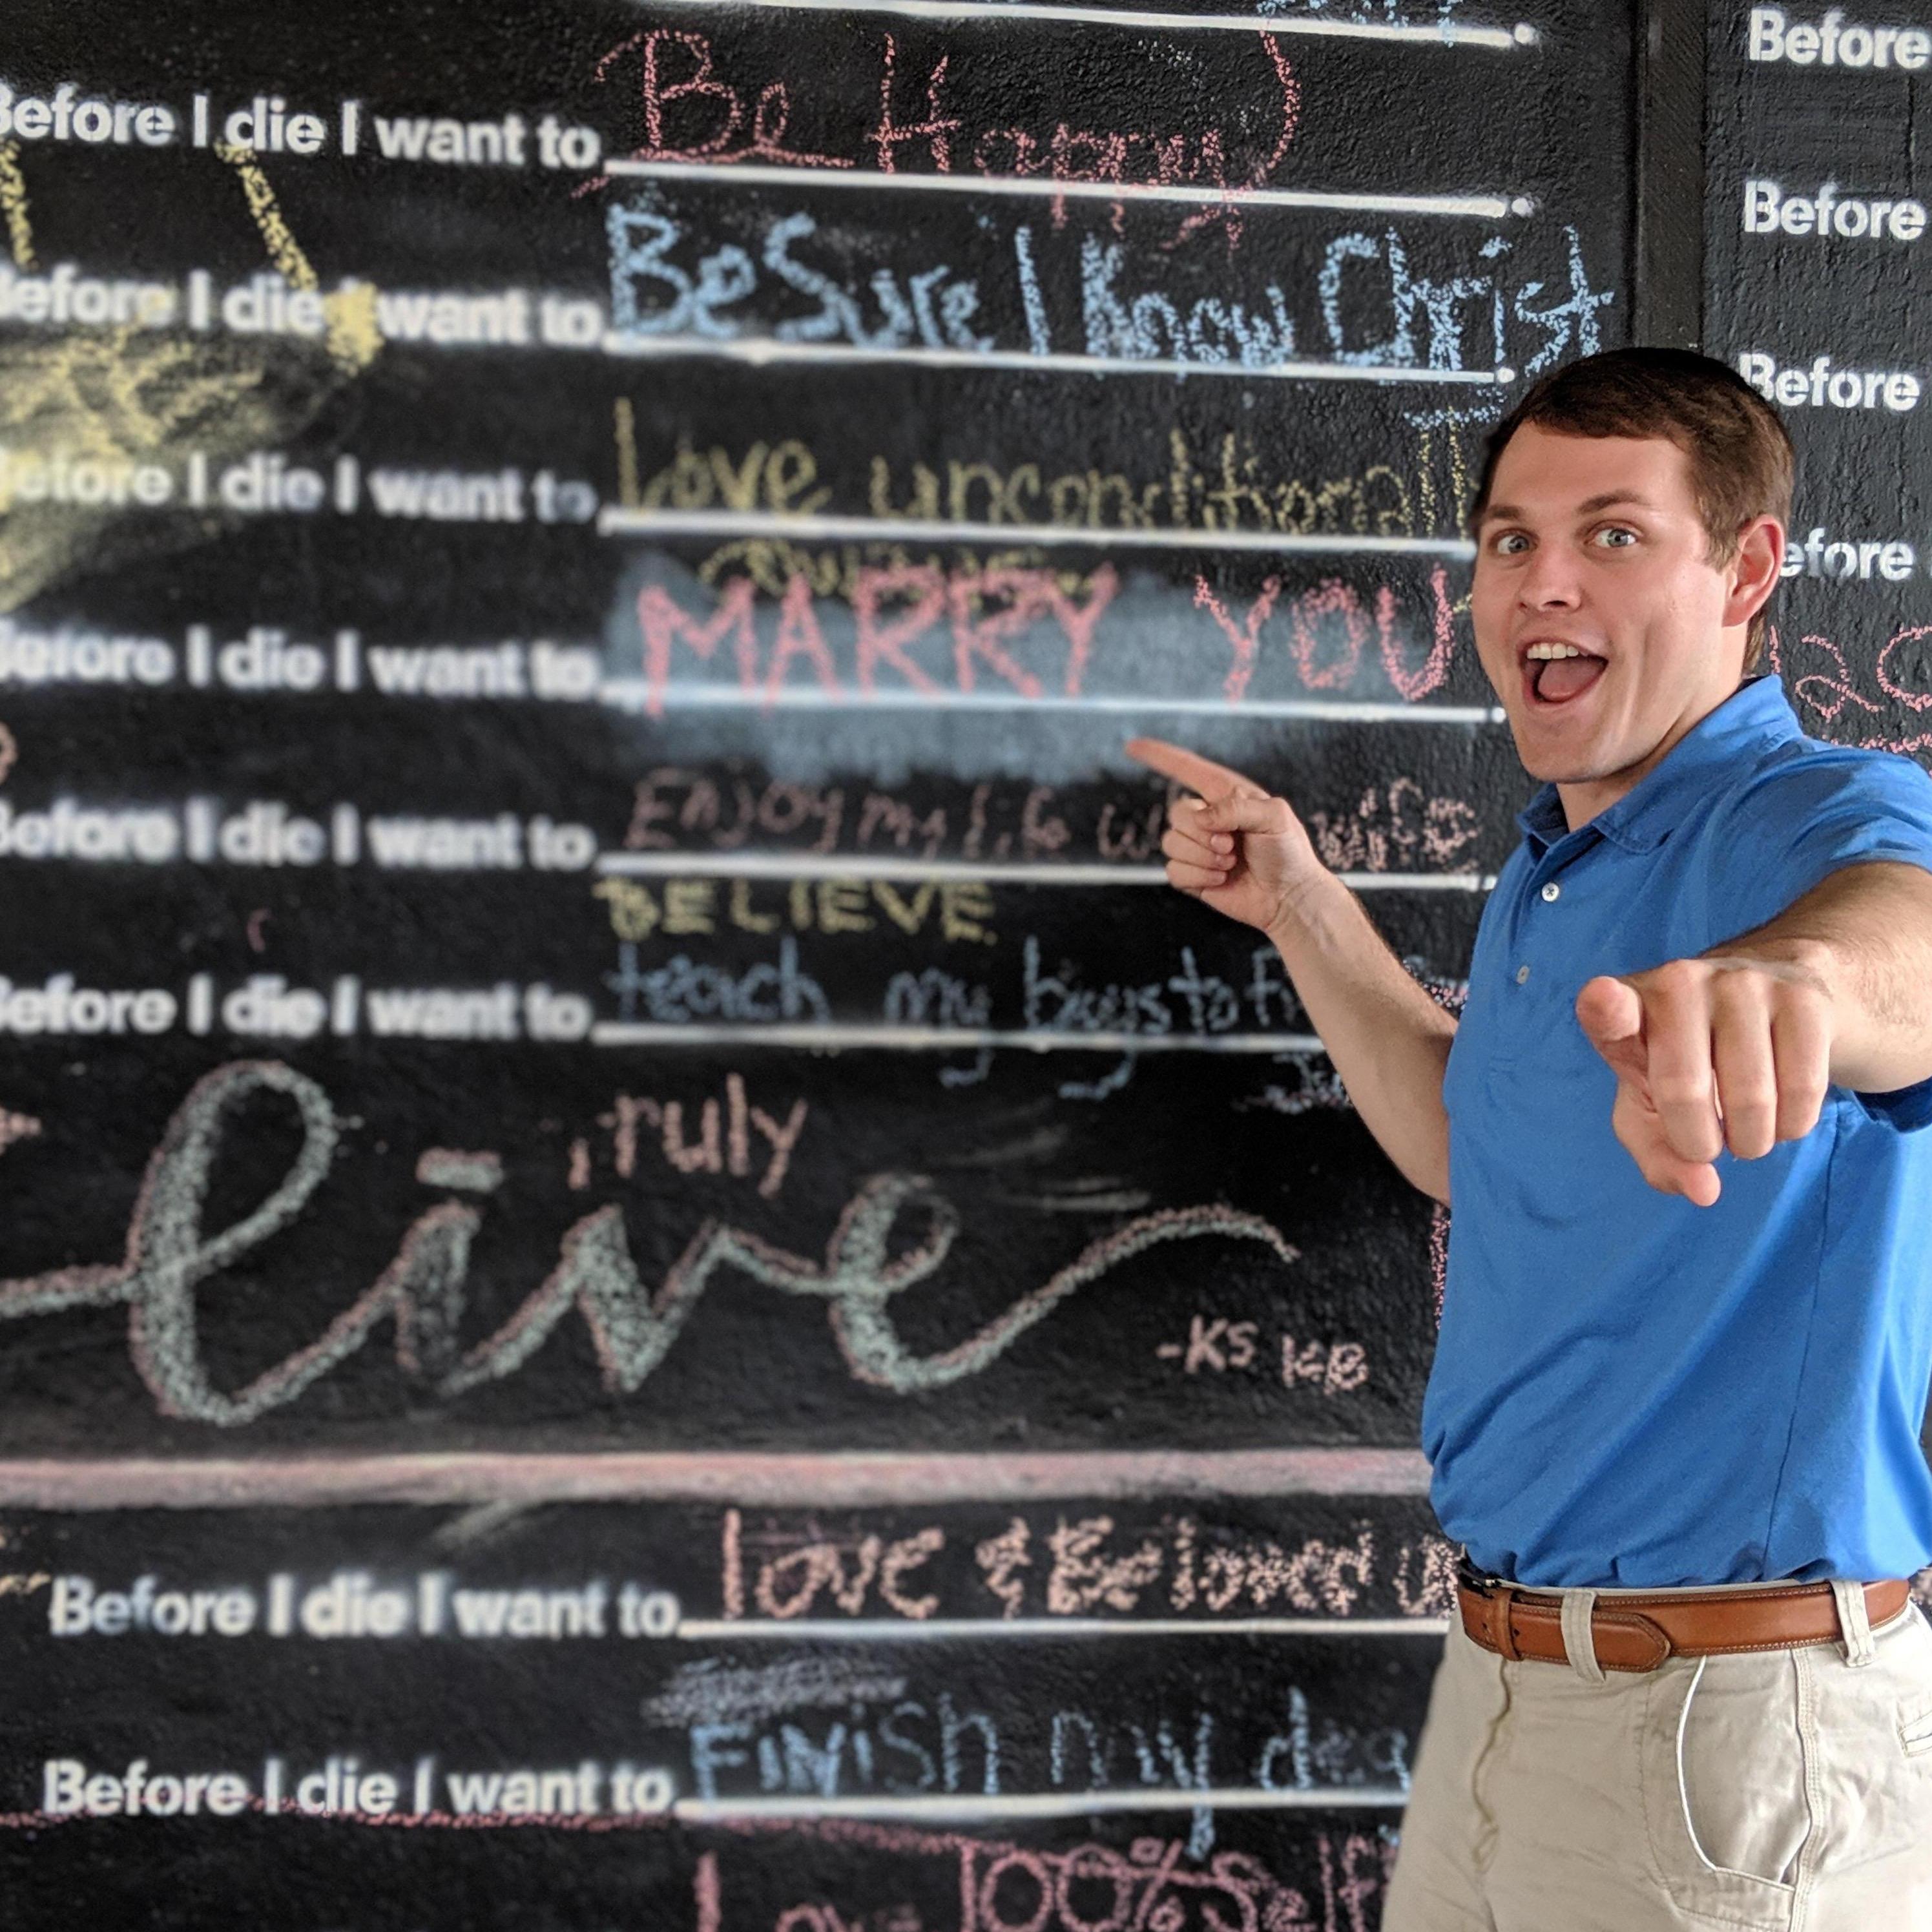 Before
Before I die I want to Be Happy
Before
Before I die I want to Be Sure I Know Christ
Before
Before I die I want to Love unconditionall
efore
Before I die I want to MARRY YOU
Before I die I want to Enjoy my life wi wife
BELIEVE.
Before I die I want to teach my boys to
ruly
live
-KS KB
Before I die I want to love & Be loved
Before I die I want to Finish my deg
100% Self